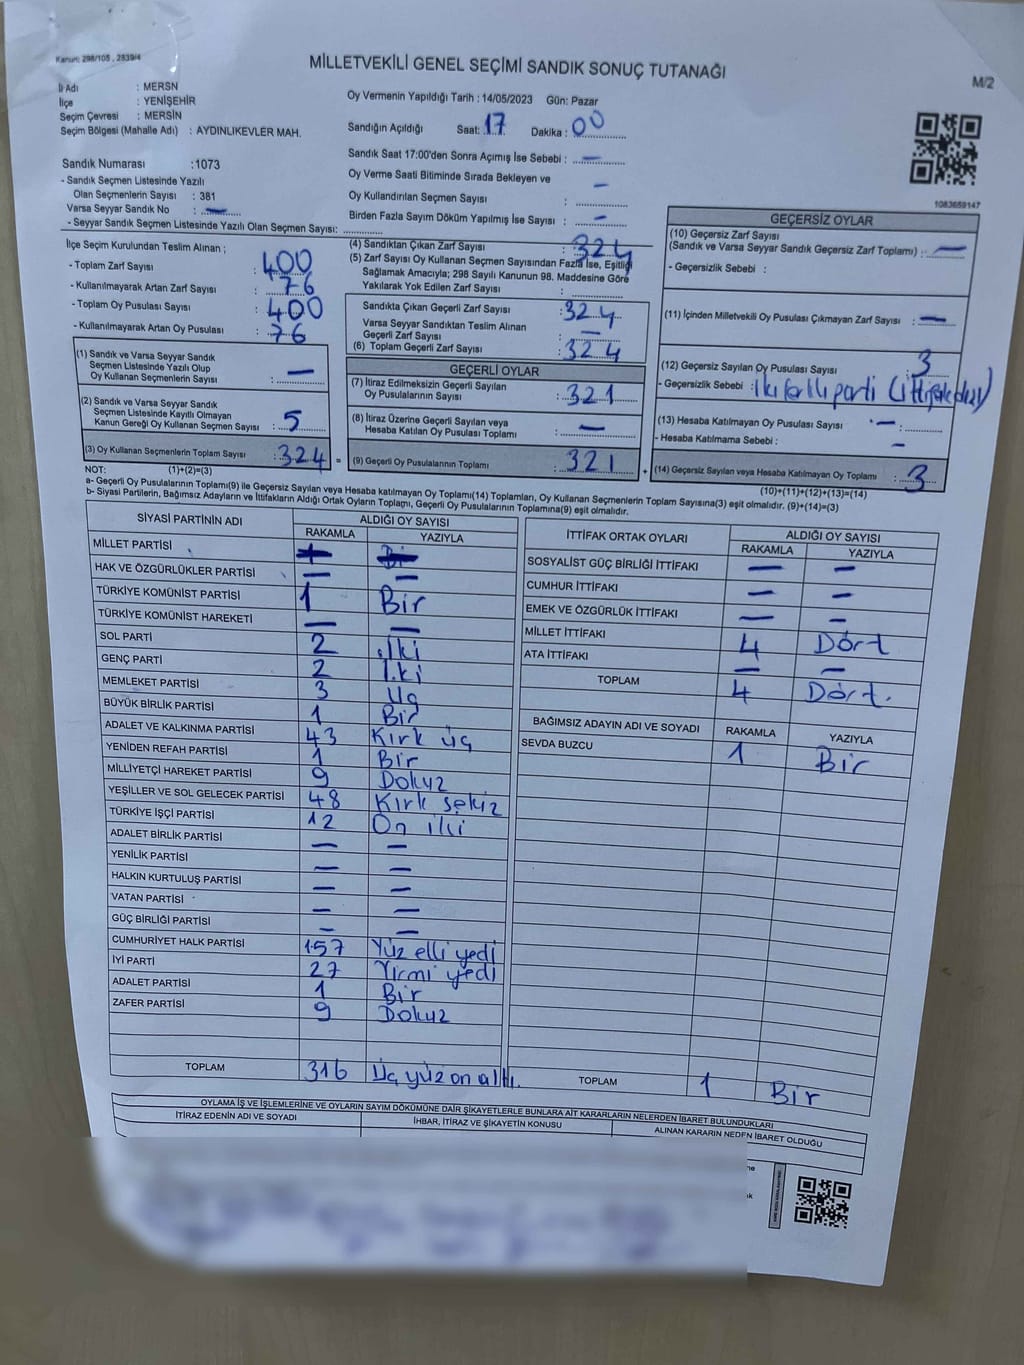 Kanun: 298/105 , 2839/4
MİLLETVEKİLİ GENEL SEÇİMİ SANDIK SONUÇ TUTANAĞI
M/2
İl Adı : MERSN
İlçe : YENİŞEHİR
Seçim Çevresi : MERSİN
Seçim Bölgesi (Mahalle Adı) : AYDINLIKEVLER MAH.
Oy Vermenin Yapıldığı Tarih : 14/05/2023 Gün: Pazar
Sandığın Açıldığı Saat: 17 Dakika : 00
Sandık Saat 17:00'den Sonra Açımış İse Sebebi : —
Oy Verme Saati Bitiminde Sırada Bekleyen ve
Oy Kullandırılan Seçmen Sayısı : —
Birden Fazla Sayım Döküm Yapılmış İse Sayısı : —
1083659147
Sandık Numarası :1073
- Sandık Seçmen Listesinde Yazılı
Olan Seçmenlerin Sayısı : 381
Varsa Seyyar Sandık No : —
- Seyyar Sandık Seçmen Listesinde Yazılı Olan Seçmen Sayısı:
İlçe Seçim Kurulundan Teslim Alınan ;
- Toplam Zarf Sayısı : 400
- Kullanılmayarak Artan Zarf Sayısı : 76
- Toplam Oy Pusulası Sayısı : 400
- Kullanılmayarak Artan Oy Pusulası : 76
(1) Sandık ve Varsa Seyyar Sandık
Seçmen Listesinde Yazılı Olup
Oy Kullanan Seçmenlerin Sayısı : —
(2) Sandık ve Varsa Seyyar Sandık
Seçmen Listesinde Kayıtlı Olmayan
Kanun Gereği Oy Kullanan Seçmen Sayısı : 5
(3) Oy Kullanan Seçmenlerin Toplam Sayısı : 324 =
(4) Sandıktan Çıkan Zarf Sayısı : 324
(5) Zarf Sayısı Oy Kullanan Seçmen Sayısından Fazla İse, Eşitliği
Sağlamak Amacıyla; 298 Sayılı Kanunun 98. Maddesine Göre
Yakılarak Yok Edilen Zarf Sayısı :
Sandıkta Çıkan Geçerli Zarf Sayısı : 324
Varsa Seyyar Sandıktan Teslim Alınan
Geçerli Zarf Sayısı : —
(6) Toplam Geçerli Zarf Sayısı : 324
GEÇERLİ OYLAR
(7) İtiraz Edilmeksizin Geçerli Sayılan
Oy Pusulalarının Sayısı : 321
(8) İtiraz Üzerine Geçerli Sayılan veya
Hesaba Katılan Oy Pusulası Toplamı : —
(9) Geçerli Oy Pusulalarının Toplamı : 321 +
GEÇERSİZ OYLAR
(10) Geçersiz Zarf Sayısı
(Sandık ve Varsa Seyyar Sandık Geçersiz Zarf Toplamı) : —
- Geçersizlik Sebebi :
(11) İçinden Milletvekili Oy Pusulası Çıkmayan Zarf Sayısı : —
(12) Geçersiz Sayılan Oy Pusulası Sayısı : 3
- Geçersizlik Sebebi : parti
(13) Hesaba Katılmayan Oy Pusulası Sayısı : —
- Hesaba Katılmama Sebebi : —
(14) Geçersiz Sayılan veya Hesaba Katılmayan Oy Toplamı : 3
NOT: (1)+(2)=(3)
(10)+(11)+(12)+(13)=(14)
a- Geçerli Oy Pusulalarının Toplamı(9) ile Geçersiz Sayılan veya Hesaba katılmayan Oy Toplamı(14) Toplamları, Oy Kullanan Seçmenlerin Toplam Sayısına(3) eşit olmalıdır. (9)+(14)=(3)
b- Siyasi Partilerin, Bağımsız Adayların ve İttifakların Aldığı Ortak Oyların Toplamı, Geçerli Oy Pusulalarının Toplamına(9) eşit olmalıdır.
SİYASİ PARTİNİN ADI ALDIĞI OY SAYISI
RAKAMLA YAZIYLA
MİLLET PARTİSİ
HAK VE ÖZGÜRLÜKLER PARTİSİ — —
TÜRKİYE KOMÜNİST PARTİSİ 1 Bir
TÜRKİYE KOMÜNİST HAREKETİ — —
SOL PARTİ 2 İki
GENÇ PARTİ 2 İki
MEMLEKET PARTİSİ 3 Üç
BÜYÜK BİRLİK PARTİSİ 1 Bir
ADALET VE KALKINMA PARTİSİ 43 Kırk üç
YENİDEN REFAH PARTİSİ 1 Bir
MİLLİYETÇİ HAREKET PARTİSİ 9 Dokuz
YEŞİLLER VE SOL GELECEK PARTİSİ 48 Kırk sekiz
TÜRKİYE İŞÇİ PARTİSİ 12 On iki
ADALET BİRLİK PARTİSİ — —
YENİLİK PARTİSİ — —
HALKIN KURTULUŞ PARTİSİ — —
VATAN PARTİSİ — —
GÜÇ BİRLİĞİ PARTİSİ — —
CUMHURİYET HALK PARTİSİ 157 Yüz elli yedi
İYİ PARTİ 27 Yirmi yedi
ADALET PARTİSİ 1 Bir
ZAFER PARTİSİ 9 Dokuz
TOPLAM 316 Üç yüz on altı.
İTTİFAK ORTAK OYLARI ALDIĞI OY SAYISI
RAKAMLA YAZIYLA
SOSYALİST GÜÇ BİRLİĞİ İTTİFAKI — —
CUMHUR İTTİFAKI — —
EMEK VE ÖZGÜRLÜK İTTİFAKI — —
MİLLET İTTİFAKI 4 Dört
ATA İTTİFAKI — —
TOPLAM 4 Dört.
BAĞIMSIZ ADAYIN ADI VE SOYADI RAKAMLA YAZIYLA
SEVDA BUZCU 1 Bir
TOPLAM 1 Bir
OYLAMA İŞ VE İŞLEMLERİNE VE OYLARIN SAYIM DÖKÜMÜNE DAİR ŞİKAYETLERLE BUNLARA AİT KARARLARIN NELERDEN İBARET BULUNDUKLARI
İTİRAZ EDENİN ADI VE SOYADI İHBAR, İTİRAZ VE ŞİKAYETİN KONUSU ALINAN KARARIN NEDEN İBARET OLDUĞU